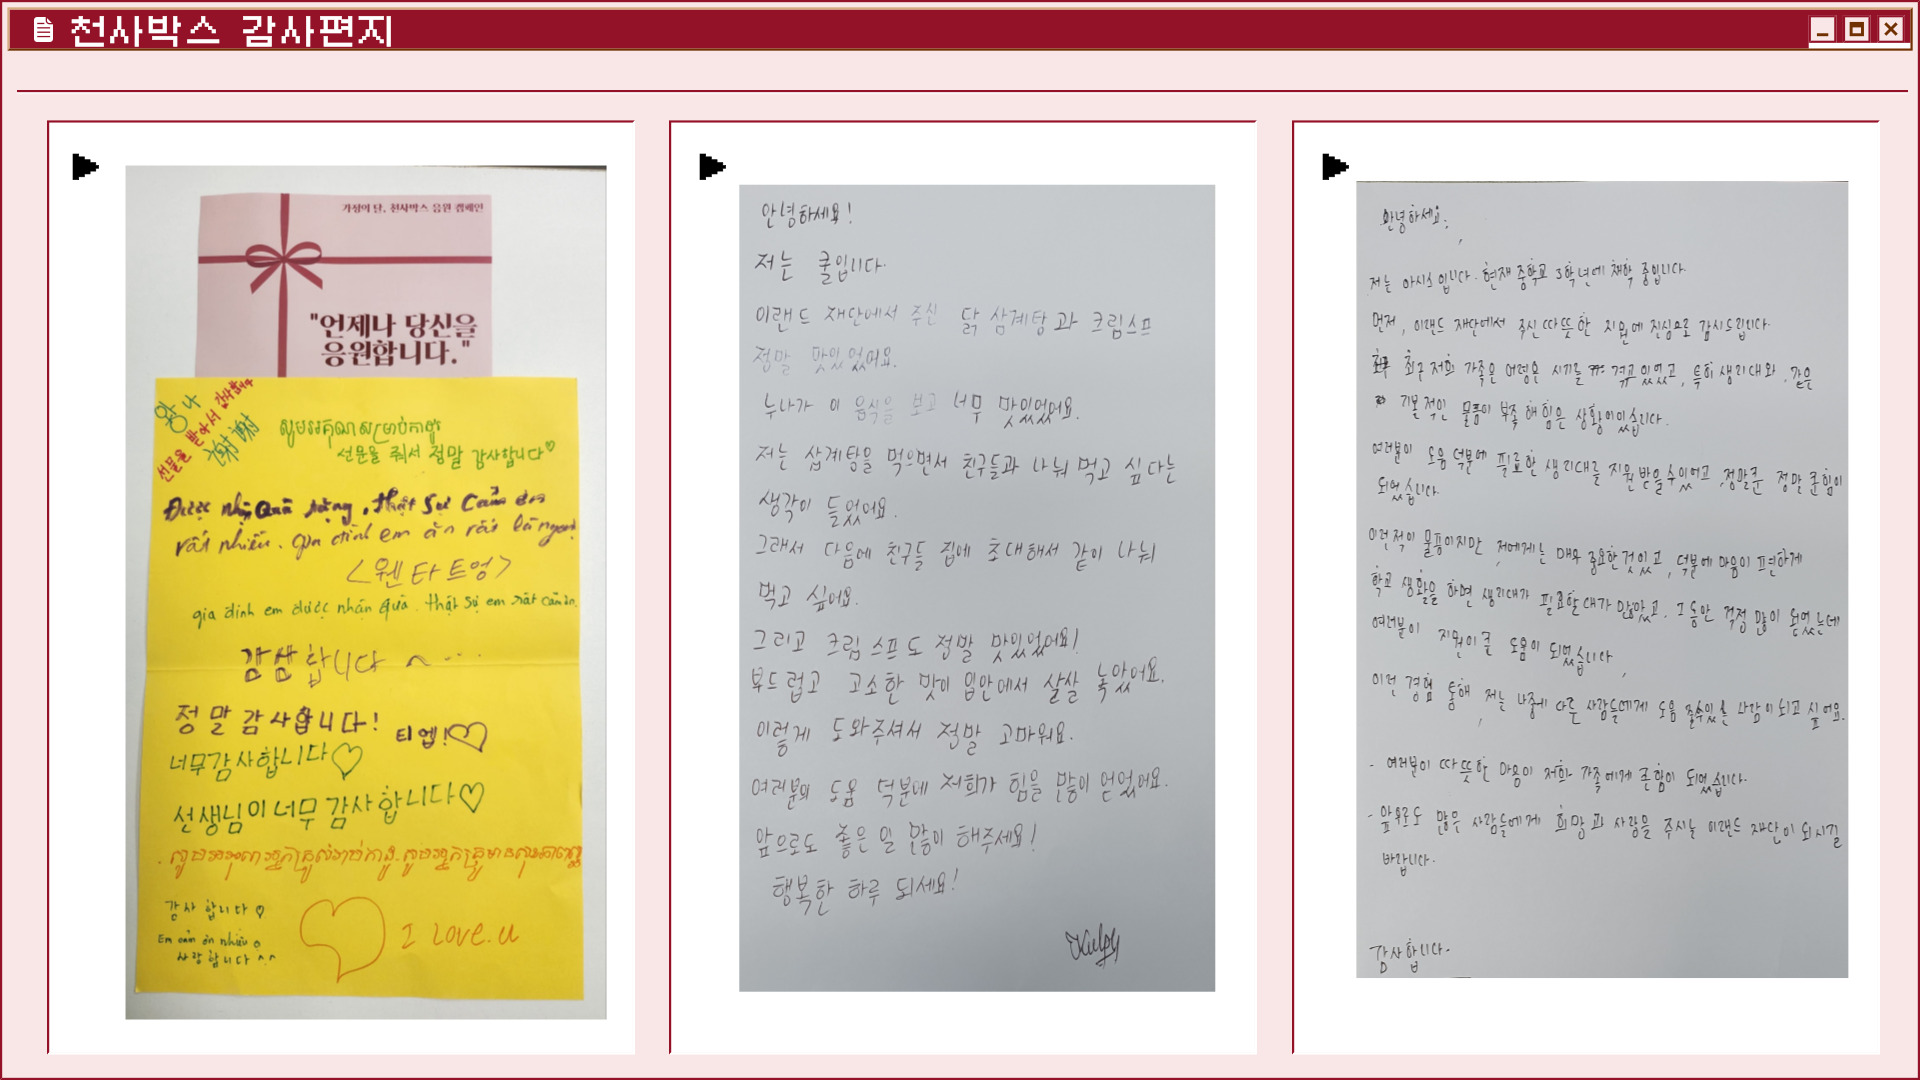 천사박스 감사편지
가정의 달, 천사박스 응원 캠페인
"언제나 당신을
응원합니다."
왕나
선물을 받아서 감사합니다
谢谢
선물을 줘서 정말 감사합니다♡
Được nhận quà tặng, thật sự cảm ơn
rất nhiều. gia đình em ăn rất
<웬 타 트엉>
gia đinh em được nhận quà. thật sự em rất cảm ơn.
감삼합니다 ~...
정말 감사합니다! 티엡!♡
너무감사합니다♡
선생님이 너무 감사합니다♡
감사합니다♡
Em cảm ơn nhiều
사랑합니다 ^^
I love.u
안녕하세요!
저는 쿨입니다.
이랜드 재단에서 주신 닭 삼계탕과 크림스프
정말 맛있었어요.
누나가 이 음식을 보고 너무 맛있었어요.
저는 삽계탕을 먹으면서 친구들과 나눠 먹고 싶다는
생각이 들었어요.
그래서 다음에 친구들 집에 초대해서 같이 나눠
먹고 싶어요.
그리고 크림 스프도 정말 맛있었어요!
부드럽고 고소한 맛이 입안에서 살살 녹았어요.
이렇게 도와주셔서 정말 고마워요.
여러분의 도움 덕분에 저희가 힘을 많이 얻었어요.
앞으로도 좋은 일 많이 해주세요!
행복한 하루 되세요!
안녕하세요.
저는 아시스입니다. 현재 중학교 3학년에 재학 중입니다.
먼저, 이랜드 재단에서 주신 따뜻한 지원에 진심으로 감사드립니다.
최근 저희 가족은 어려운 시기를 겪고 있었고, 특히 생리대와 같은
기본적인 물품이 부족해 힘든 상황이었습니다.
여러분이 도움 덕분에 필요한 생리대를 지원 받을 수 있었고, 정말큰 정말 큰힘이
되었습니다.
이런적이 물품이지만, 저에게는 매우 중요한 것이었고, 덕분에 마음이 편안하게
학교 생활을 하면 생리대가 필요할때가 많았고. 그동안 걱정 많이 됐었는데
여러분이 지원이 큰 도움이 되었습니다.
이런 경험 통해, 저는 나중에 다른 사람들에게 도움 줄수있는 사람이 되고 싶어요.
- 여러분이 따뜻한 마음이 저희 가족에게 큰힘이 되었습니다.
- 앞으로도 많은 사람들에게 희망과 사랑을 주시는 이랜드 재단이 되시길
바랍니다.
감사합니다.